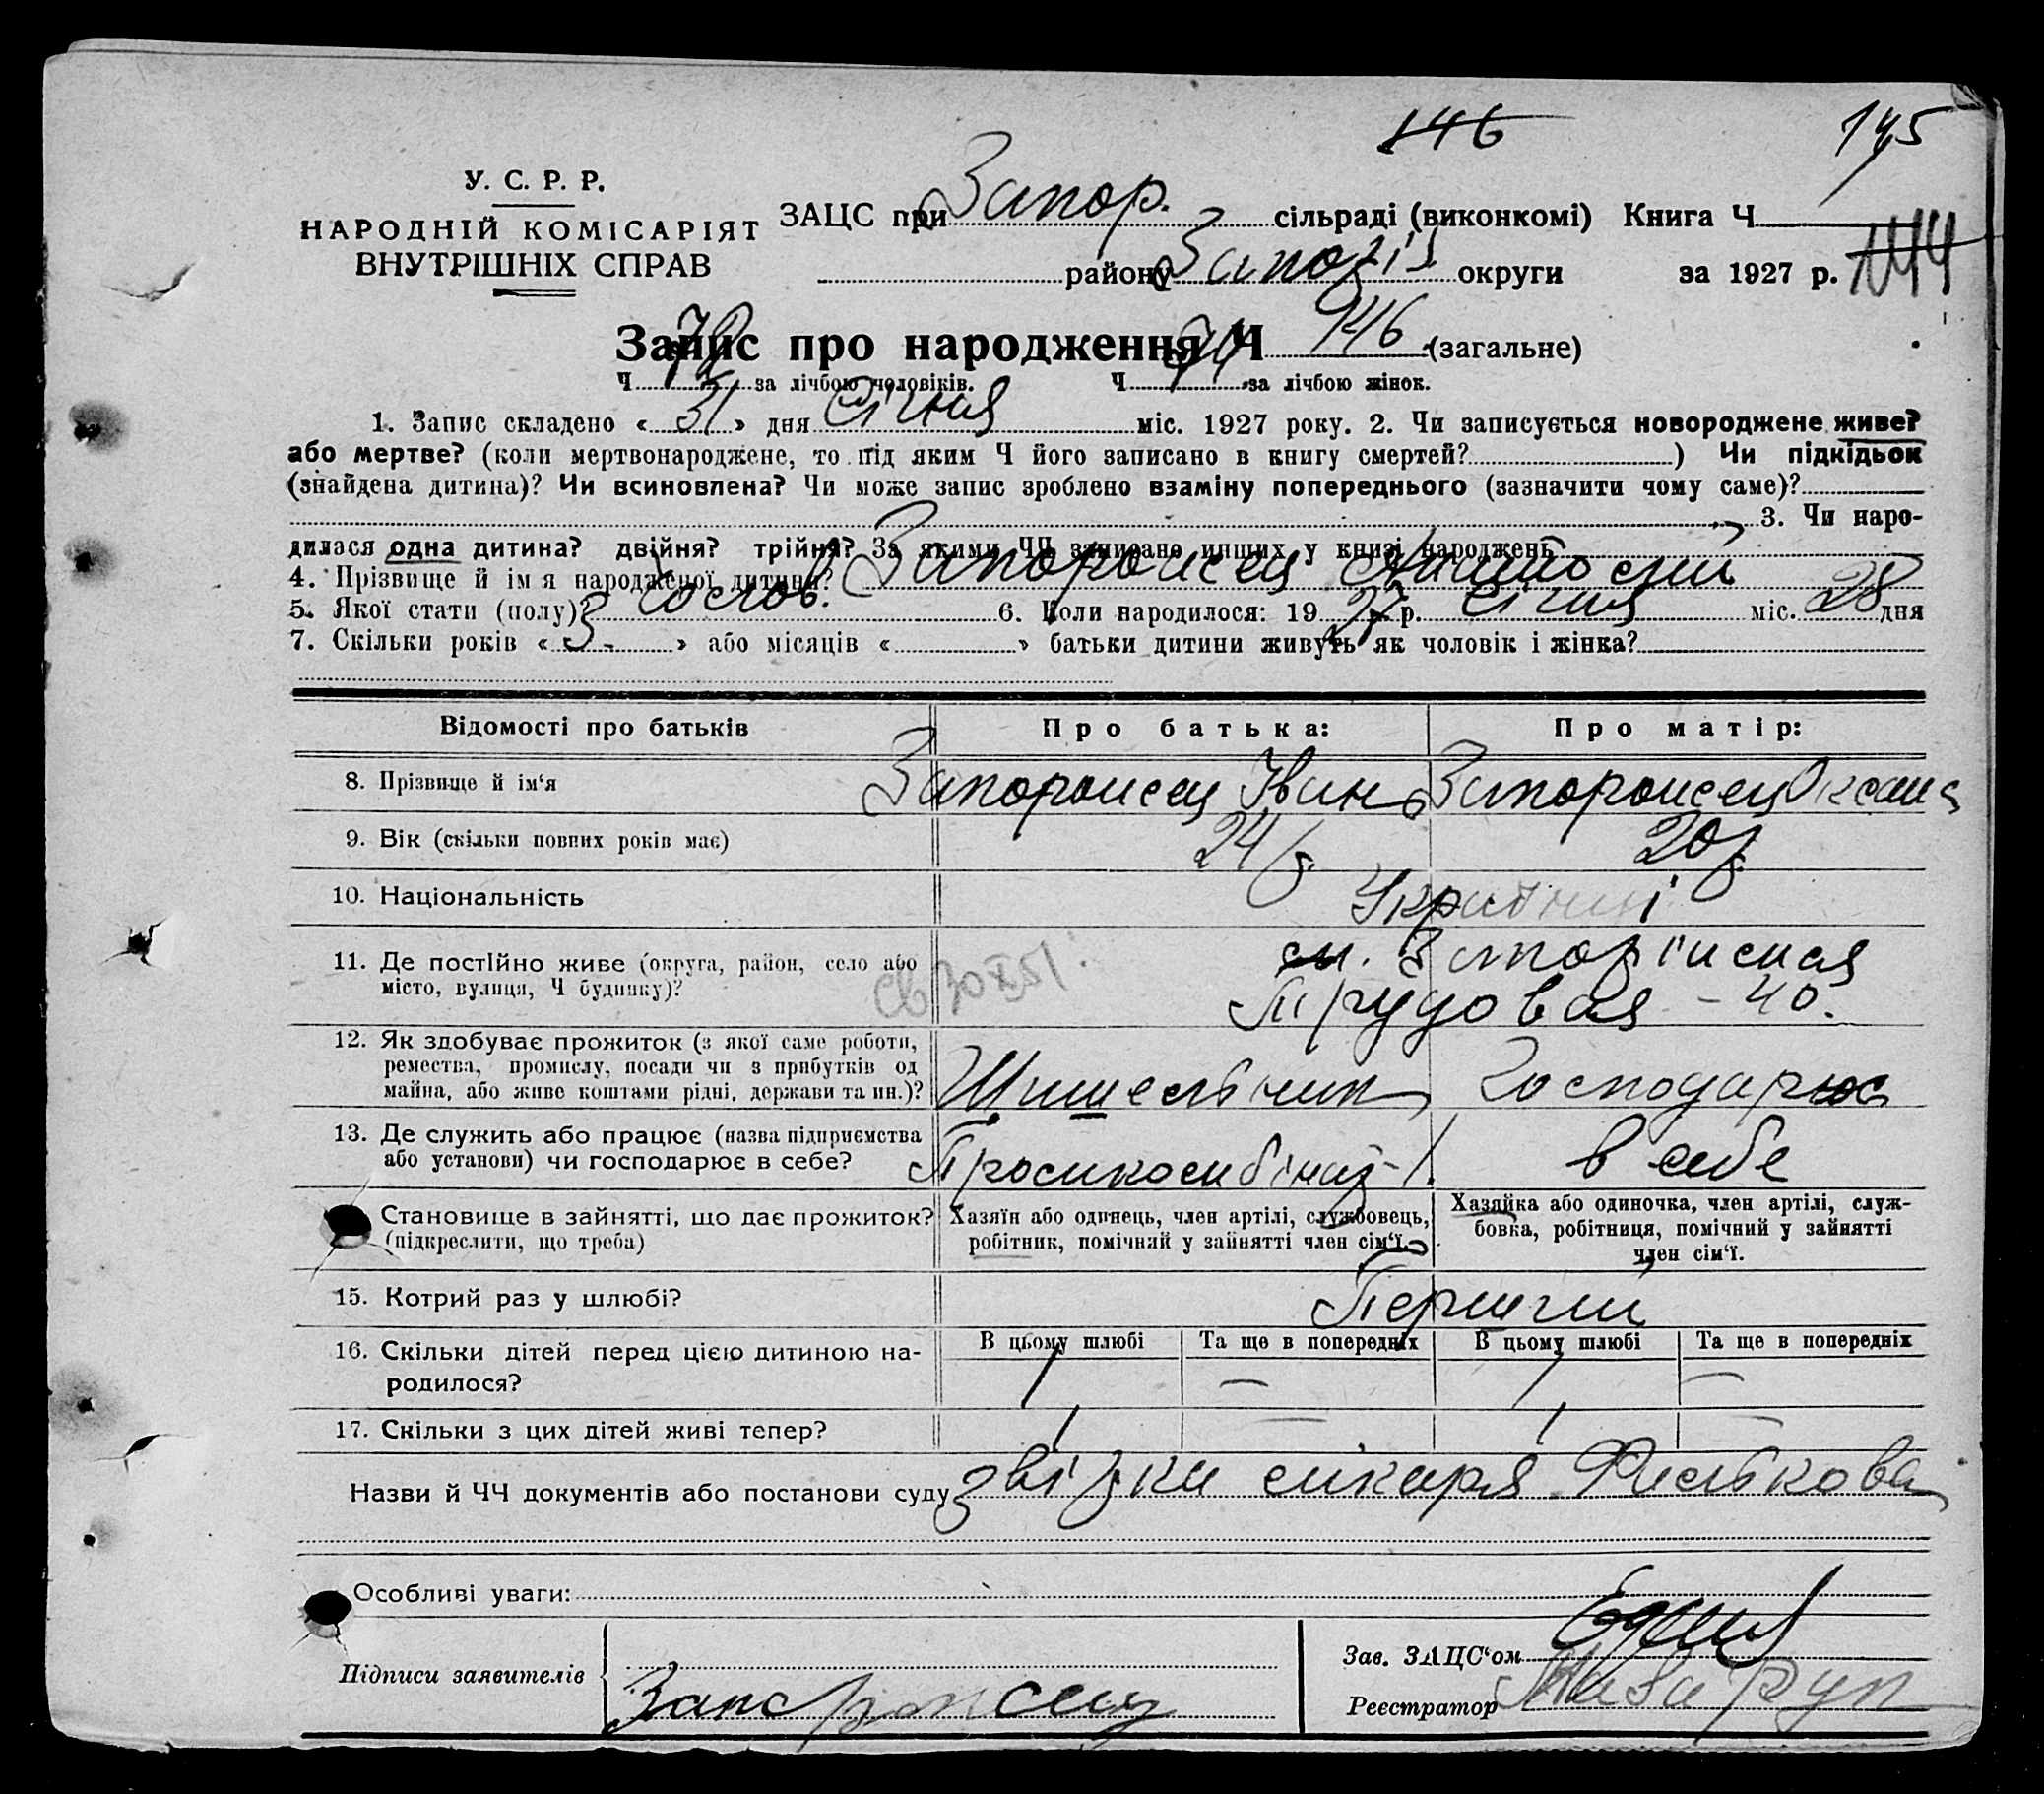 146
145
У. С. Р. Р.
НАРОДНІЙ КОМІСАРІЯТ
ВНУТРІШНІХ СПРАВ
ЗАЦС при Запор. сільраді (виконкомі) Книга Ч
району Запоріз округи за 1927 р. 144
Запис про народження Ч 146 (загальне)
Ч 72 за лічбою чоловіків. Ч 74 за лічбою жінок.
1. Запис складено « 31 » дня Січня міс. 1927 року. 2. Чи записується новороджене живе?
або мертве? (коли мертвонароджене, то під яким Ч його записано в книгу смертей? ) Чи підкідьок
(знайдена дитина)? Чи всиновлена? Чи може запис зроблено взаміну попереднього (зазначити чому саме)?
3. Чи наро-
дилася одна дитина? двійня? трійня? За якими ЧЧ записано инших у книзі народжень
4. Прізвище й імя народженої дитини? Запорожец Анатолій
5. Якої стати (полу)? Чолов. 6. Коли народилося: 19 27 р. Січня міс. 28 дня
7. Скільки років « 3 - » або місяців « » батьки дитини живуть як чоловік і жінка?
Відомості про батьків Про батька: Про матір:
8. Прізвище й ім‘я Запорожец Іван Запорожец Оксана
9. Вік (скільки повних років має) 24 р. 20 р.
10. Національність Українці
11. Де постійно живе (округа, район, село або
місто, вулиця, Ч будинку)? м. Запоріжжя
Трудовая - 40.
12. Як здобуває прожиток (з якої саме роботи,
ремества, промислу, посади чи з прибутків од
майна, або живе коштами рідні, держави та ин.)? Господарює
13. Де служить або працює (назва підприємства
або установи) чи господарює в себе? в себе
Становище в зайнятті, що дає прожиток?
(підкреслити, що треба)
Хазяїн або одинець, член артілі, службовець,
робітник, помічний у зайнятті член сім‘ї.
Хазяйка або одиночка, член артілі, служ-
бовка, робітниця, помічний у зайнятті
член сім‘ї.
15. Котрий раз у шлюбі? Перший
16. Скільки дітей перед цією дитиною на-
родилося?
В цьому шлюбі Та ще в попередніх В цьому шлюбі Та ще в попередніх
1 — 1 —
17. Скільки з цих дітей живі тепер? 1 — 1 —
Назви й ЧЧ документів або постанови суду звізки лікаря
Особливі уваги:
Підписи заявителів Запорожец
Зав. ЗАЦС‘ом
Реєстратор